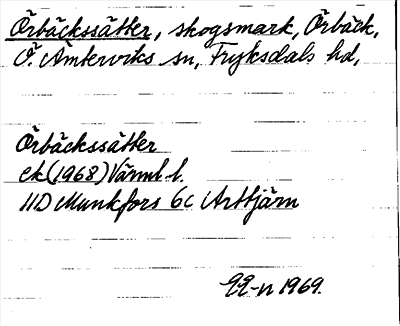 Örbäckssätter, skogsmark, Örbäck,
Ö. Ämterviks sn, Fryksdals hd,
Örbäckssätter
ek (1968) Värml. l.
11D Munkfors 6c Arttjärn
1969.